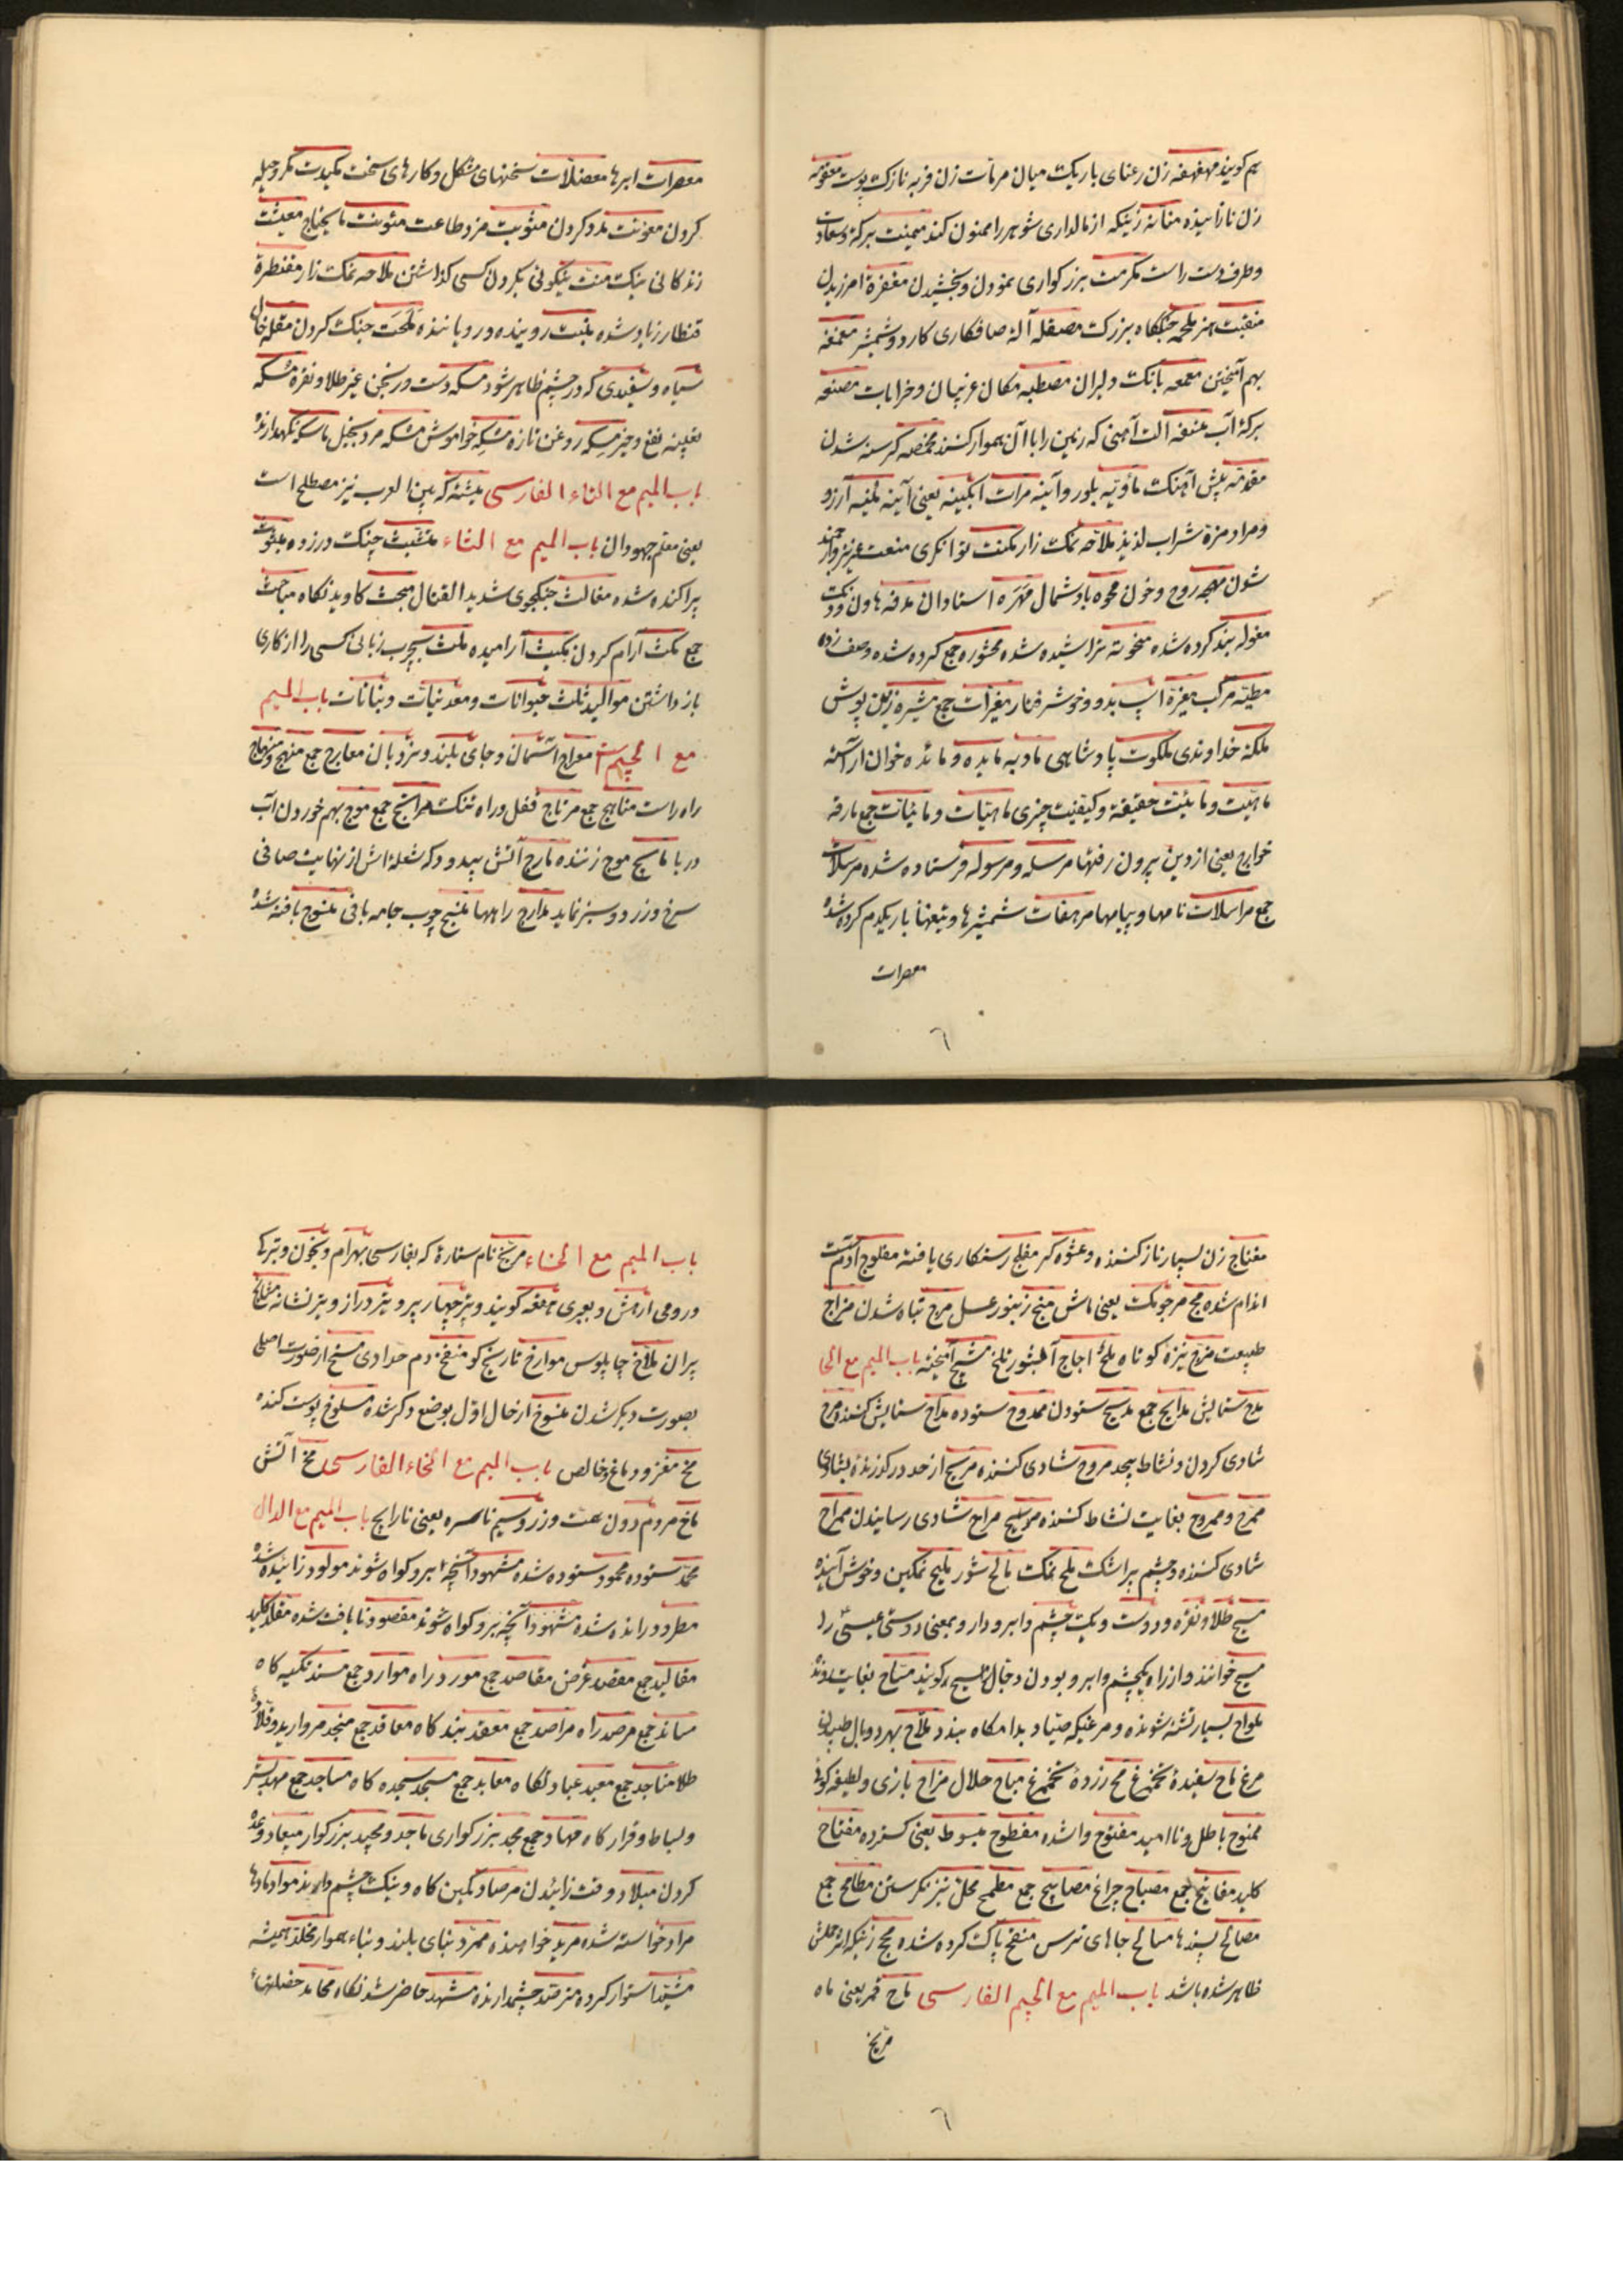 هم کویند مهفهفه زن رعنای باریک میان مرمات زن فربه نازک پوست معقومه
زن نازائیده منانه زنیکه از مالداری شوهر را ممنون کند میمنت برکة وسعادت
وطرف دست راست مکرمت بزرکواری نمودن وبخشیدن مغفرة امرزیدن
منقبت هنر ملحمه جنگاه بزرک مصقله آلهٔ صافکاری کارد وشمشیر مغمغه
بهم آمیختن معمعه بانک دلیران مصطبه مکان غریبان وخرابات مصنعه
برکهٔ آب آلت آهنی که زمین را با آن هموار کنند مخمصه کرسنه شدن
مقدمه پیش آهنک ماویه بلور وآینه مرات ابکینه یعنی آینه آرزو
ومراد مزة شراب لذیذ ملاحه نمک زار مکنت توانکری منعت عزیز
شدن مهجه روح وخون محوه باد شمال مهره استادان مدقه هاون
مغوله بند کرده شده منحوته تراشیده شده محشوره جمع کرده شده
مطیه مرکب اسپ بدو وخوش رفتار جمع زین پوش
ملکه خداوندی ملکوت پادشاهی مادبه مایده ومائده خوان آراسته
ماهیت ومائیت حقیقة وکیفیت چیزی ماهیات ومائیات جمع مارقه
خوارج یعنی از دین بیرون رفتها مرسله ومرسوله فرستاده شده مرسلات
جمع مراسلات نامها وپیامها مرهفات شمشیرها وتیغها باریکدم کرده شده
معصرات
٦
معصرات ابرها معضلات سخنهای مشکل وکارهای سخت مکیدت مکر وحیله
کردن معونت مدد کردن مثوبت مزد طاعت مئونت مایحتاج معیشت
زندکانی نیک منت نیکوئی بکردن کسی کذاشتن ملاحه نمک زار مقنطرة
قنطار زیاد شده منبت روینده ورویاننده ملحمت جنک کردن مقله خال
سیاه وسفیدی که در چشم ظاهر شود مسکه دست ورنجن غیر طلا ونقره مسکه
مسکه روغن تازه مسکه خواموش مسکه مرد بخیل ماسکه نکهدارنده
باب المیم مع التاء الفارسی میشنه که بین العرب نیز مصطلح است
یعنی معلم جهودان باب المیم مع الثاء متشبث چنک درزده مبثوث
پراکنده شده مغالث جنکجوی شدید القتال مبحث کاویدنکاه مباحث
جمع مکث آرام کردن مکیث آرامیده ملث بچرب زبانی کسی را از کاری
باز داشتن موالید ثلث حیوانات ومعدنیات ونباتات باب المیم
مع الجیم معراج آسمان وجای بلند ونردبان معارج جمع منهج ومنهاج
راه راست مناهج جمع مرتاج قفل وراه تنک مراتج جمع موج بهم خوردن آب
دریا مائج موج زننده مارج آتش بیدود که شعله اش از نهایت صافی
سرخ وزرد وسبز نماید مدارج راهها منسج چوب جامه بافی منسوج بافته شده
مغناج زن بسیار ناز کننده وعشوه کر مفلح رستکاری یافته مفلوج
اندام شده مج مرجومک یعنی ماش منج زنبور عسل مرج تباه شدن مزاج
طبیعت مزج نیزه کوتاه ملج اجاج آب شور تلخ مشیج آمیخته باب المیم مع الحا
مدح ستایش مدایح جمع مدیح ستودن ممدوح ستوده مداح ستایش کننده مرح
شادی کردن ونشاط بیحد مروح شادی کننده مریح از حد درکذرنده بشادی
ممرح وممروح بغایت نشاط کننده مراح شادی رسانیدن ممراح
شادی کننده وچشم پر اشک ملح نمک مالح شور ملیح نمکین وخوش آینده
مسیح طلا ونقره ودوست ویک چشم وابرو دار وبمعنی دوستی عیسی را
مسیح خوانند واز راه یکچشم وابرو بودن دجال را مسیح کویند مساح بغایت
ملواح بسیار تشنه شونده ومرغیکه صیاد بدامکاه بندد ملاح بهر دو بال طپیدن
مرغ ماح سفیدهٔ تخم مرغ مح زردهٔ تخم مرغ مباح حلال مزاح بازی ولطیفه کوئی
ممنوح باطل وناامید مفتوح واشده مفطوح مبسوط یعنی کسترده مفتاح
کلید مفاتیح جمع مصباح چراغ مصابیح جمع مطمح محل تیز نکرستن مطامح جمع
مصالح پسندها مسالح جاهای ترس منقح پاک کرده شده مجح زنیکه اثر حملش
ظاهر شده باشد باب المیم مع الجیم الفارسی ماح قمر یعنی ماه
مریخ
٦
باب المیم مع الخاء مریخ نام ستارهٔ که بفارسی بهرام وبخون وترکی
ورومی وبعبری کویند وتیر چهار پر وتیر دراز وتیر نشانه
پران ملاخ چاپلوس موارخ تاریخ کو منفخ دم حدادی مسخ از صورت اصلی
بصورت دیکر شدن منسوخ از حال اول بوضع دکر شده مسلوخ پوست کنده
مخ مغز ودماغ وخالص باب المیم مع الخاء الفارسی مخ آتش
ماخ مردم دون همت وزر وسیم ناسره یعنی نارایج باب المیم مع الدال
محمد ستوده محمود ستوده شده مشهود آنچه بر او کواه شوند مولود زائیده شده
مطرود رانده شده مشهود آنچه بر او کواه شوند مقصود نایافت شده مقلد کلید
مقالید جمع مقصد غرض مقاصد جمع مورد راه موارد جمع مسند تکیه کاه
مساند جمع مرصد راه مراصد جمع معقد بند کاه معاقد جمع منجد مروارید وقلادهٔ
طلا مناجد جمع معبد عبادتکاه معابد جمع مسجد سجده کاه مساجد جمع مهد بستر
وبساط وقرار کاه مهاد جمع مجد بزرکواری ماجد ومجید بزرکوار میعاد وعده
کردن میلاد وقت زائیدن مرصاد کمین کاه ونیک چشم دارنده مواد مادها
مراد خواسته شده مرید خواهنده ممرد بنای بلند وبناء هموار مخلد همیشه
مشید استوار کرده مترصد چشمدارنده مشهد حاضر شدنکاه محامد خصلتهای